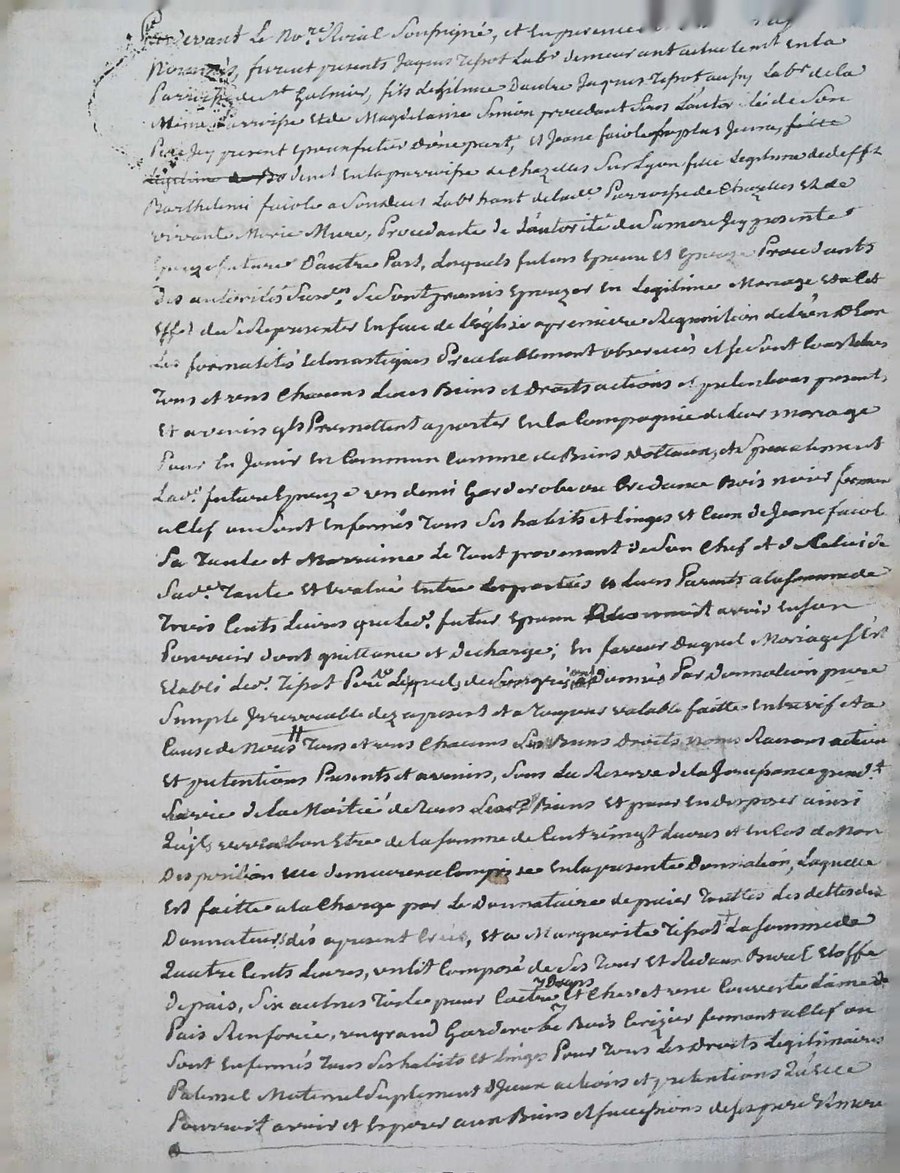 Pardevant Le No.re Roial Soussigné, et en presence
Nommés, furent presents Jaques Tissot Lab.r demeurant actuelemt en la
Parroisse de St Galmier, fils legitime Dautre Jaques Tissot aussy Lab.r de la
Même Parroisse et de Magdelaine Simon procedant Sous L'autorité de Son
Pere Jcy present Epoux futur D'une part, et Jeane faiole plus Jeune, fille
demt en la parroisse de Chazelles Sur Lyon fille Legitime de defft
Barthelemi faiole a Son vivant Lab.r hant de lad.e Parroisse de Chazelles et de
vivante Marie Mure, Procedante de L'autorité de Sa mere Jcy presente
Epouze future D'autre Part, Lesquels futurs Epoux et Epouze Procedants
des autorités Susd.es Se Sont promis Epouzer en Legitime Mariage et a Cet
Effet de Se Representer En face de L'eglize a premiere Requisition de L'un D'eux
Les formalités Preelablement observées et se Sont Constitués
Tous et uns Chacuns Leurs Biens et Droits actions et pretentions presents
Et avenirs qls Promettent aporter en la Compagnie de Leur mariage
Pour En Jouir en Commun Comme de Biens Dottaux, et Specialement
Lad.e future Epouze un demi Garderobe ou Credance Bois noier fermant
a Clef ou Sont Enfermés Tous Ses habits et Linges et Ceux de Jeane faiole
Sa Tante et Marraine Le Tout provenant de Son Chef et de Celui de
Sad.e Tante Et Evalué entre Les parties et Leurs Parents a la Somme de
Trois Cents Livres que Led.t futur Epoux Reconnoit avoir En son
Pouvoir dont quittance et decharge; En faveur Duquel Mariage S'est
Etabli Led.t Tissot Pere Lequel, de Son gré Donné Par Donnation pure
Simple Jrrevocable dez apresent et a Toujours valable faitte Entre vif et a
Cause de Noces Tous et uns Chacuns Ses Biens Droits noms Raisons actions
Et pretentions Presents et avenirs, Sous La Reserve de la Jouissance
de La Moitié de Tous Biens Et pour En disposer ainsi
Qu'jl verra bon Etre de la Somme de Cent vingt Livres et En Cas de Non
Disposition elle demeurera Comprise En la presente Donnation, Laquelle
Est faitte a la Charge par Le Donnataire de paier Touttes Les dettes du
Donnateur dés apresent Créés, Et a Marguerite Tissot La Somme de
Quatre Cents Livres, un Lit Composé de Ses Tour Et Rideaux Burat Etoffe
de pais, Six autres Toile
draps
pour Et Chevet une Couverte Laine de
Pais Renforcée, un grand Garderobe Bois Cerizier fermant a Clef ou
Sont Enfermés Tous Ses habits et Linges Pour Tous Les Droits Legitimaires
Paternel Maternel Suplement D'jceux actions et pretentions Qu'elle
Pourroit avoir et Esperer aux Biens et Successions de Ses pere et mere